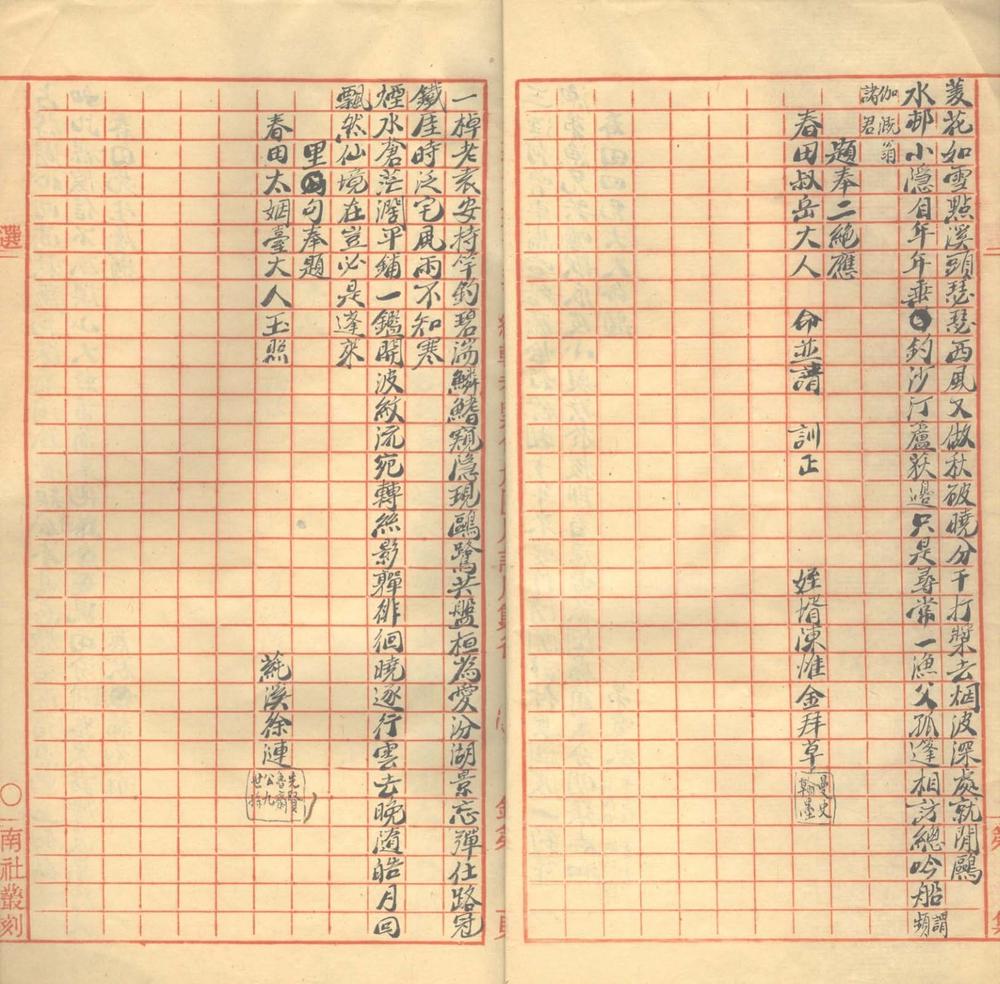 菱花如雪點溪頭瑟瑟西風又做秋破曉分千打槳去烟波深處就閒鷗
水邨小隱自年年垂釣沙汀蘆荻邊只是尋常一漁父孤篷相訪總吟船謂頻
伽溉翁
諸君
題奉二絶應
春田叔岳大人 命並請 訓正 姪壻陳惟金拜草
曼史
翰墨
一棹老袁安持竿釣碧湍鱗鰭窺隱現鷗鷺共盤桓為愛汾湖景忘彈仕路冠
鐵厓時泛宅風雨不知寒
煙水蒼茫濶平鋪一鑑開波紋流宛轉絲影嚲徘徊曉逐行雲去晚隨皓月回
飄然仙境在豈必是蓬萊
里句奉題
春田太姻臺大人玉照 蒓溪徐漣
先賢
魯齋
公九
世孫
集
選
南社叢刻